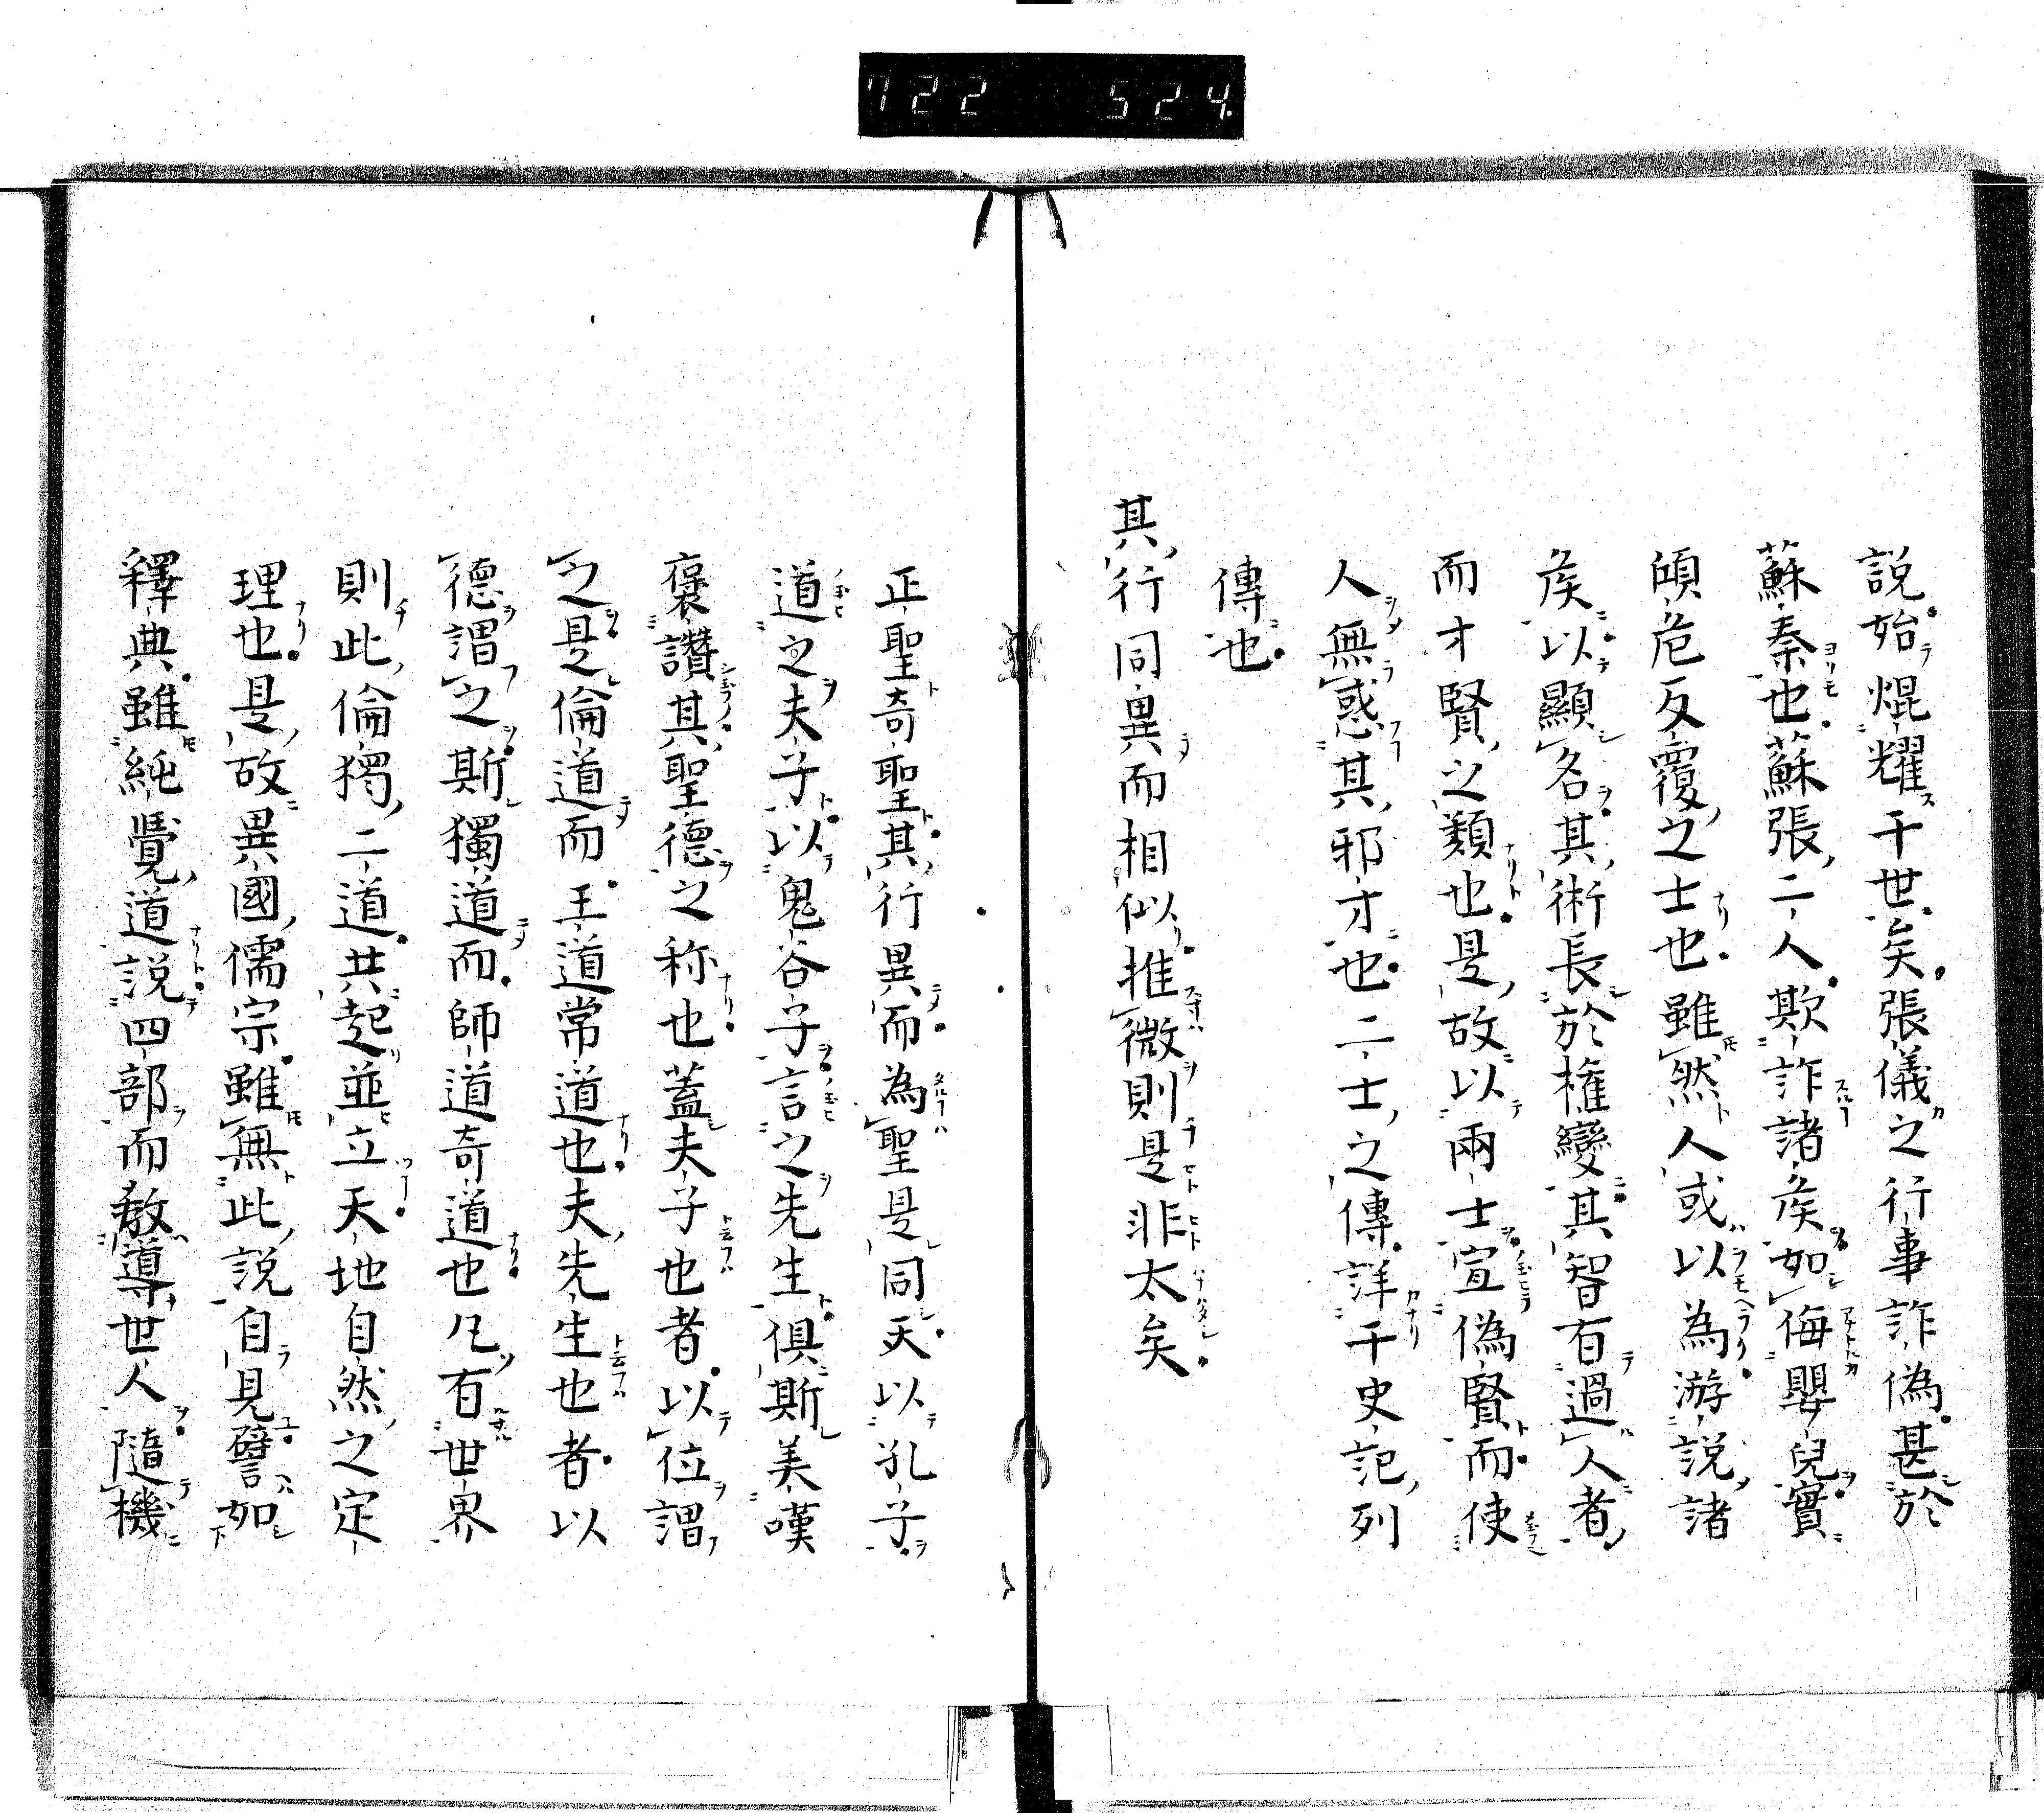 722 524
説始焜耀千世矣張儀之行事詐偽甚於
蘇秦也蘇張二人欺詐諸侯如侮嬰兒實
傾危反覆之士也雖然人或以為游説諸
侯以顯名其術長於権變其智有過人者
而才賢之類也是故以兩士宣偽賢而使
人無惑其邪才也二士之傳詳于史記列
傳也
其行同異而相似推微則是非太矣
正聖奇聖其行異而為聖是同天以孔子
道之夫子以鬼谷子言之先生俱斯美嘆
褒讚其聖德之称也蓋夫子也者以位謂
之是倫道而王道常道也夫先生也者以
德謂之斯獨道而師道奇道也凡有世界
則此倫獨二道共起並立天地自然之定
理也是故異國儒宗雖無此説自見譬如
釋典雖純覺道説四部而教導世人隨機